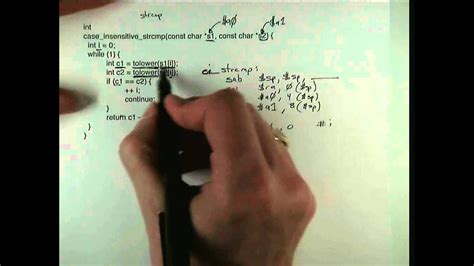 strcmp
$a0 $a1
int
case_insensitive_strcmp(const char *s1, const char *s2) {
int i = 0;
while (1) {
int c1 = tolower(s1[i]);
int c2 = tolower(s2[i]);
if (c1 == c2) {
++ i;
continue;
}
return c1 -
}
}
ci_strcmp:
sub $sp, $sp,
$ra, 0($sp)
$a0, 4($sp)
$a1, 8($sp)
, 0 # i